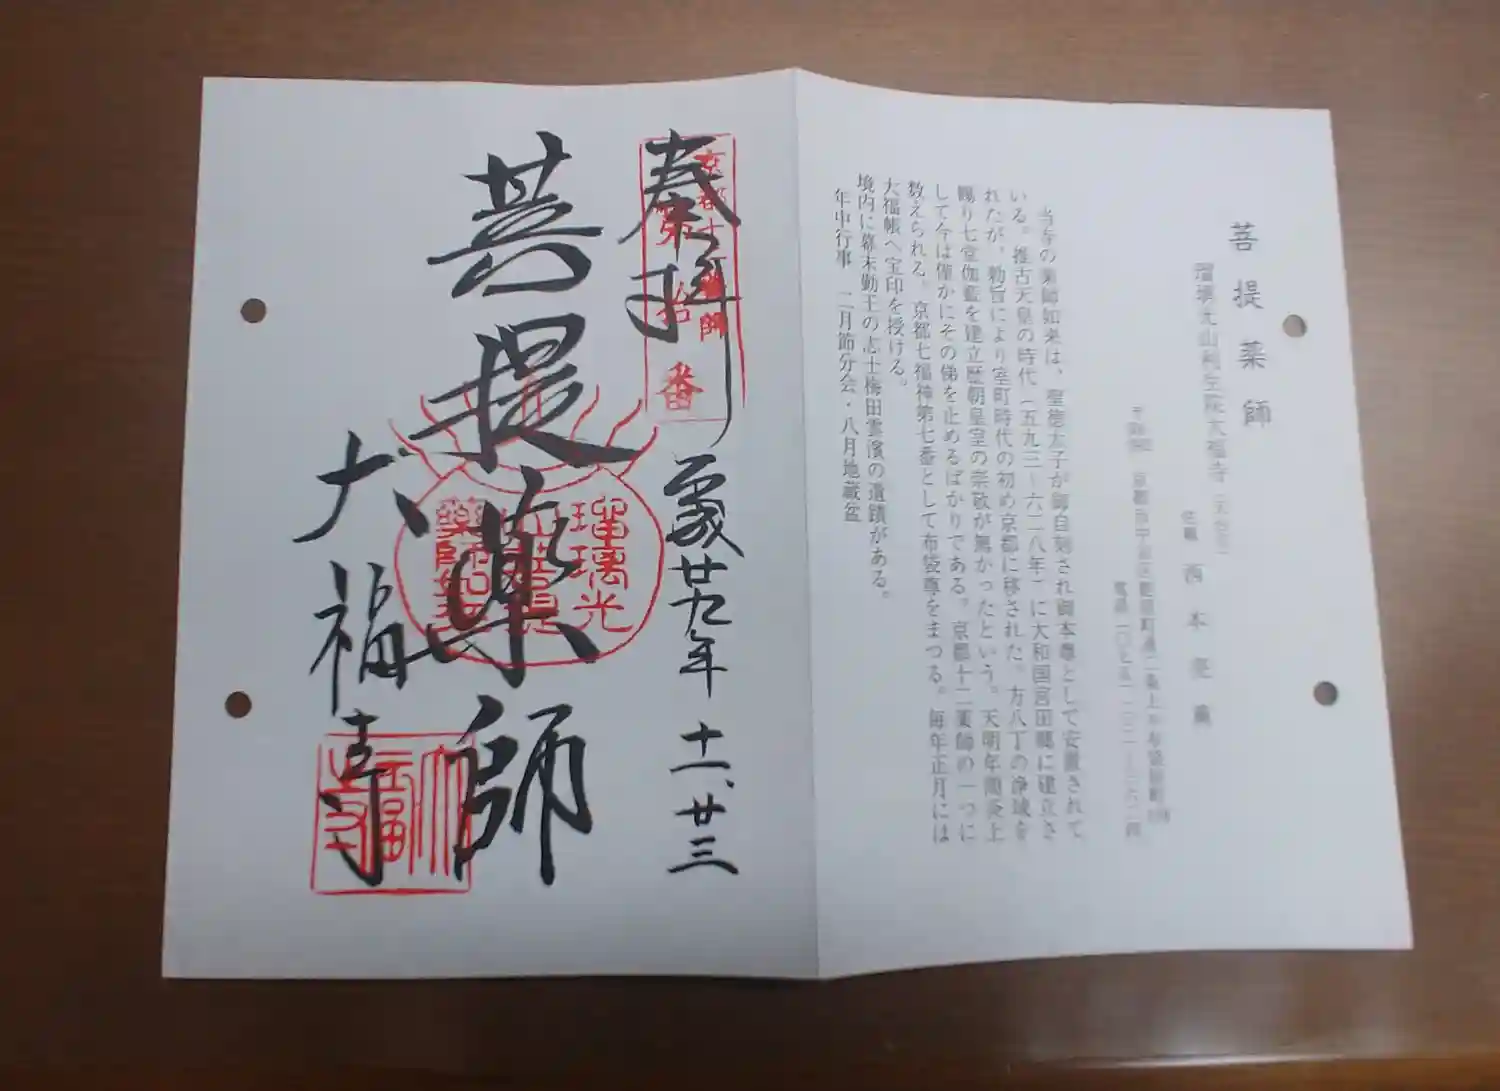 菩提薬師
瑠璃光山利生院大福寺（天台宗）
住職 西本亮
京都市中京区麩屋町通二条上ル布袋屋町
当寺の薬師如来は、聖徳太子が御自刻され御本尊として安置されて
いる。推古天皇の時代（五九三－六二八年）に大和国宮田郷に建立さ
れたが、勅旨により室町時代の初め京都に移された。方八丁の浄域を
賜り七堂伽藍を建立歴朝皇室の崇敬が篤かったという。天明年間炎上
して今は僅かにその俤を止めるばかりである。京都十二薬師の一つに
数えられる。京都七福神第七番として布袋尊をまつる。毎年正月には
大福帳へ宝印を授ける。
境内に幕末勤王の志士梅田雲濱の遺蹟がある。
年中行事 二月節分会・八月地蔵盆
奉拝
京都十二薬師
第拾番
廿九年 十一、廿三
菩提薬師
瑠璃光
山菩提
薬師如来
大福寺